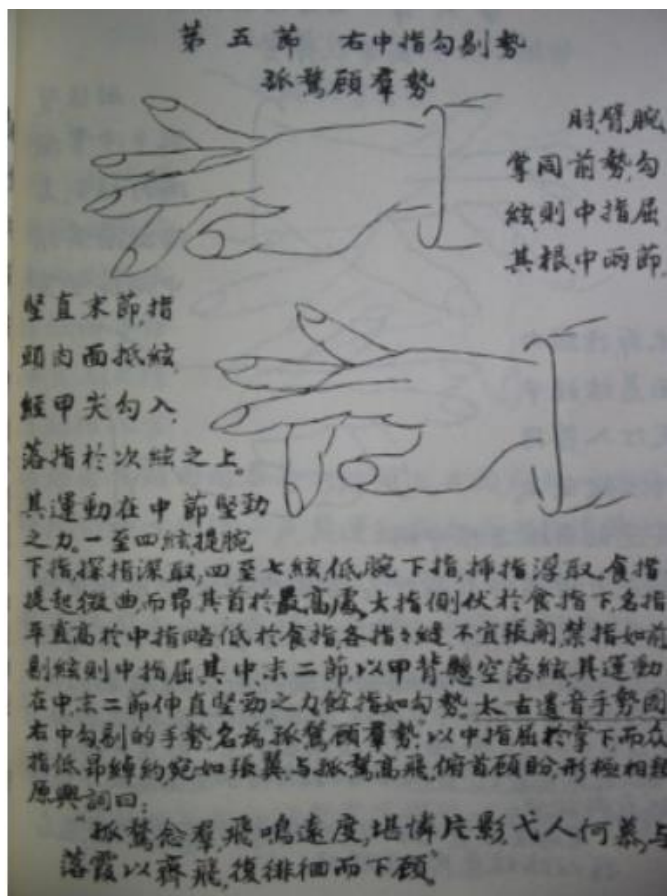 第五節　右中指勾剔勢
孤鶩顧羣勢
肘臂腕
掌同前勢，勾
絃則中指屈
其根中兩節，
堅直末節，指
頭肉面抵絃，
經甲尖勾入，
落指於次絃之上。
其運動在中節堅勁
之力。一至四絃，提腕
下指，探指深取，四至七絃，低腕下指，揷指浮取。食指
提起微曲，而昂其首於最高處，大指側伏於食指下，名指
平直高於中指略低於食指，各指々縫，不宜張開，禁指如前
剔絃則中指屈其中、末二節，以甲背懸空落絃，其運動
在中、末二節伸直堅勁之力餘指如勾勢。太古遺音手勢圖
右中勾剔的手勢，名為“孤鶩顧羣勢”，以中指屈於掌下而众
指低昂綽約，宛如張翼，与孤鶩高飛，俯首顧盼，形極相類
原興詞曰：
“孤鶩念羣，飛鳴遠度，堪憐片影，弋人何慕，与
落霞以齊飛，復徘徊而下顧”